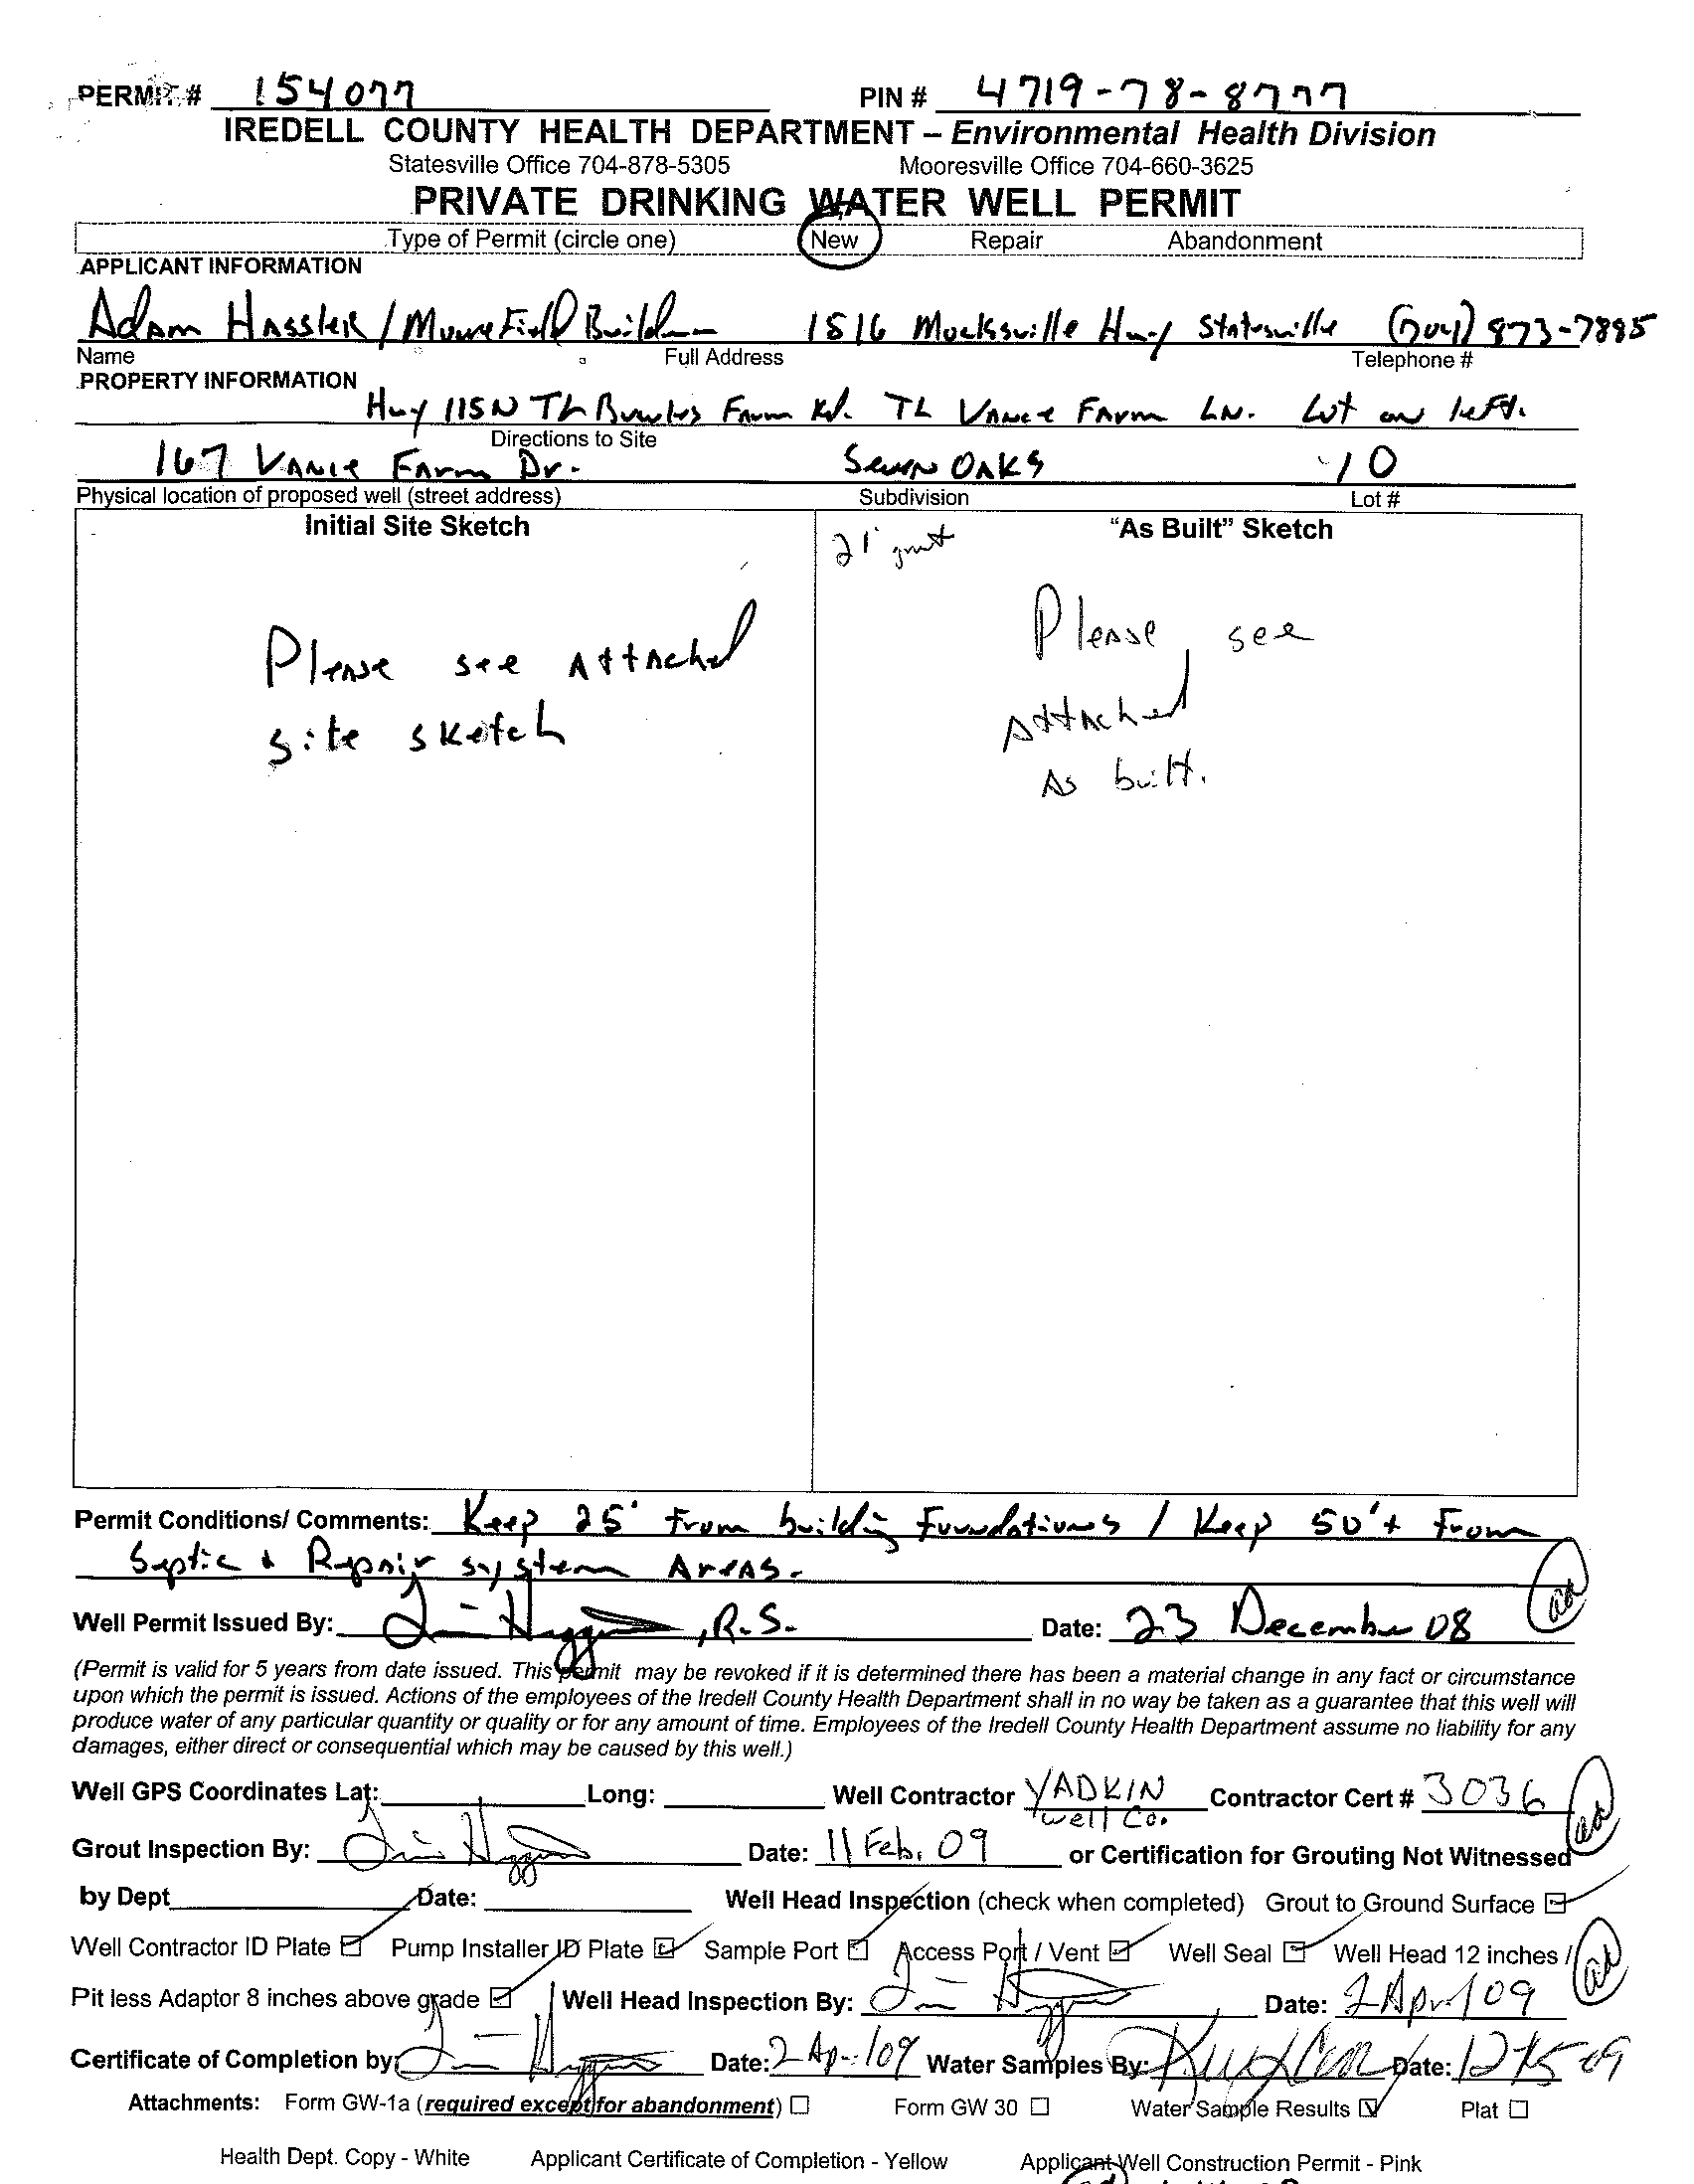 PERMIT # 154077 PIN # 4719-78-8777
IREDELL COUNTY HEALTH DEPARTMENT – Environmental Health Division
Statesville Office 704-878-5305 Mooresville Office 704-660-3625
PRIVATE DRINKING WATER WELL PERMIT
Type of Permit (circle one) New Repair Abandonment
APPLICANT INFORMATION
Adam Hassler / 1516 Mocksville Hwy Statesville (704) 873-7885
Name Full Address Telephone #
PROPERTY INFORMATION
Hwy 115N TL Farm Rd. TL Vance Farm LN. Lot on left.
Directions to Site
167 Vance Farm Dr. Seven Oaks 10
Physical location of proposed well (street address) Subdivision Lot #
Initial Site Sketch "As Built" Sketch
21' grout
Please see Attached
site sketch
Please see
Attached
As built.
Permit Conditions/ Comments: Keep 25' From building Foundations / Keep 50'+ From
Septic & Repair system Areas.
Well Permit Issued By: , R.S. Date: 23 December 08
(Permit is valid for 5 years from date issued. This permit may be revoked if it is determined there has been a material change in any fact or circumstance
upon which the permit is issued. Actions of the employees of the Iredell County Health Department shall in no way be taken as a guarantee that this well will
produce water of any particular quantity or quality or for any amount of time. Employees of the Iredell County Health Department assume no liability for any
damages, either direct or consequential which may be caused by this well.)
Well GPS Coordinates Lat: Long: Well Contractor YADKIN Well Co. Contractor Cert # 3036
Grout Inspection By: Date: 11 Feb. 09 or Certification for Grouting Not Witnessed
by Dept Date: Well Head Inspection (check when completed) Grout to Ground Surface
Well Contractor ID Plate Pump Installer ID Plate Sample Port Access Port / Vent Well Seal Well Head 12 inches /
Pit less Adaptor 8 inches above grade Well Head Inspection By: Date: 2 April 09
Certificate of Completion by: Date: 2 April 09 Water Samples By: Date: 12-15-09
Attachments: Form GW-1a (required except for abandonment) Form GW 30 Water Sample Results Plat
Health Dept. Copy - White Applicant Certificate of Completion - Yellow Applicant Well Construction Permit - Pink